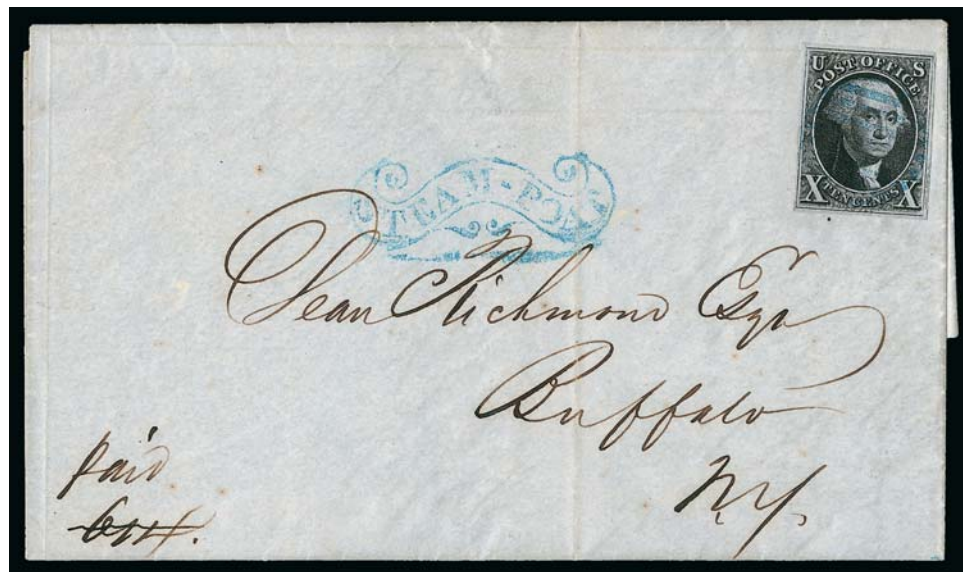 U S
POST OFFICE
X TEN CENTS X
STEAM-BOAT
Dean Richmond Esqr
Buffalo
N.Y.
Paid